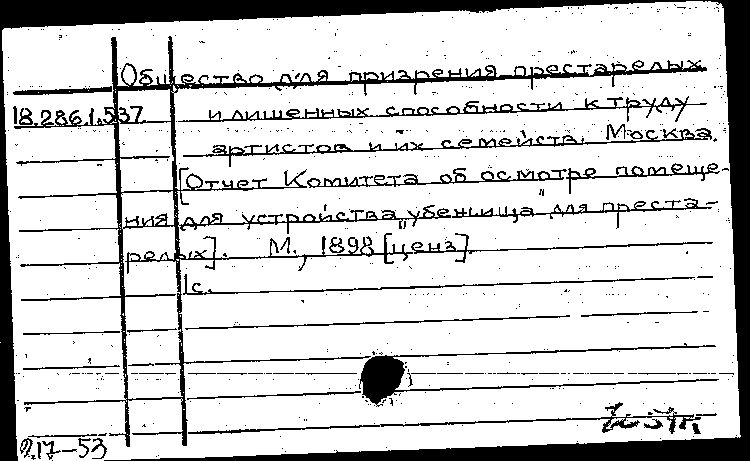 Общество для призрения престарелых
18.286.1.537 и лишенных способности к труду
артистов и их семейств. Москва.
[Отчет Комитета об осмотре помеще-
ния для устройства „убежища" для преста-
релых]. М., 1898 [ценз].
1с.
217-53